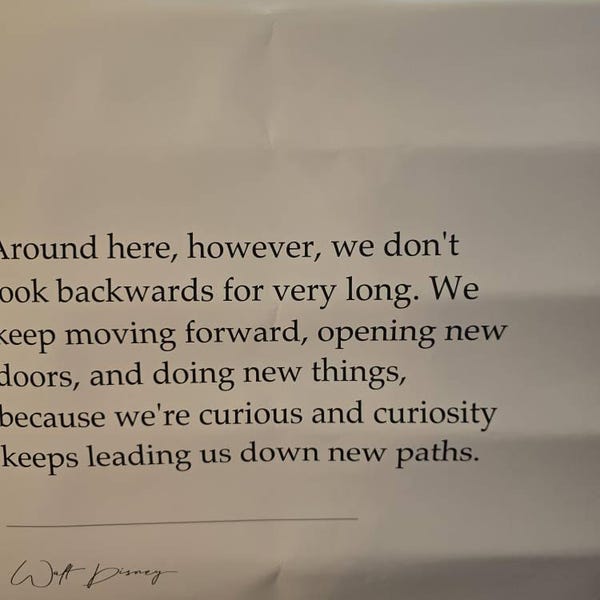 Around here, however, we don't
ook backwards for very long. We
keep moving forward, opening new
doors, and doing new things,
because we're curious and curiosity
keeps leading us down new paths.
Walt Disney